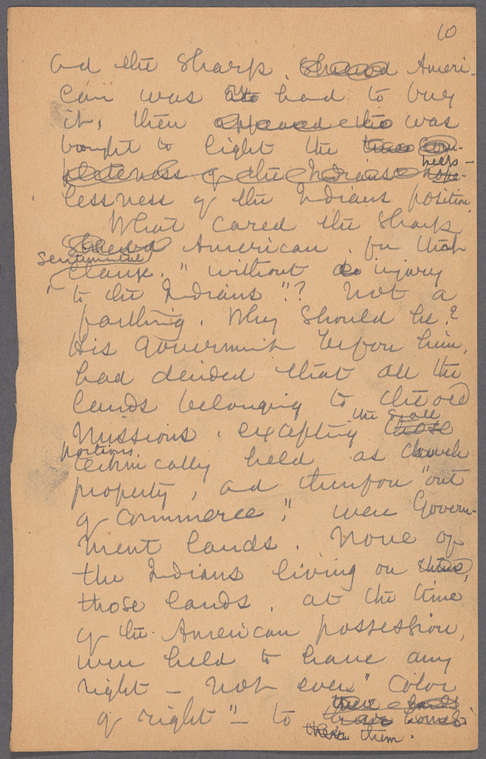 10
and the sharp, shrewd Ameri-
can was on hand to buy
it, then appeared was
brought to light the
help-
lessness of the Indians position
What cared the sharp
shrewd American, for that
sentimental
clause, "without injury
"to the Indians"? Not a
farthing. Why should he?
His Government before him,
had decided that all the
lands belonging to the old
the small
Missions, excepting those
portions,
technically held as church
property, and therefore "out
of commerce", were Govern-
ment lands. None of
the Indians living on these,
those lands, at the time
of the American possession,
were held to have any
right - not even "color
of right" - to
them.